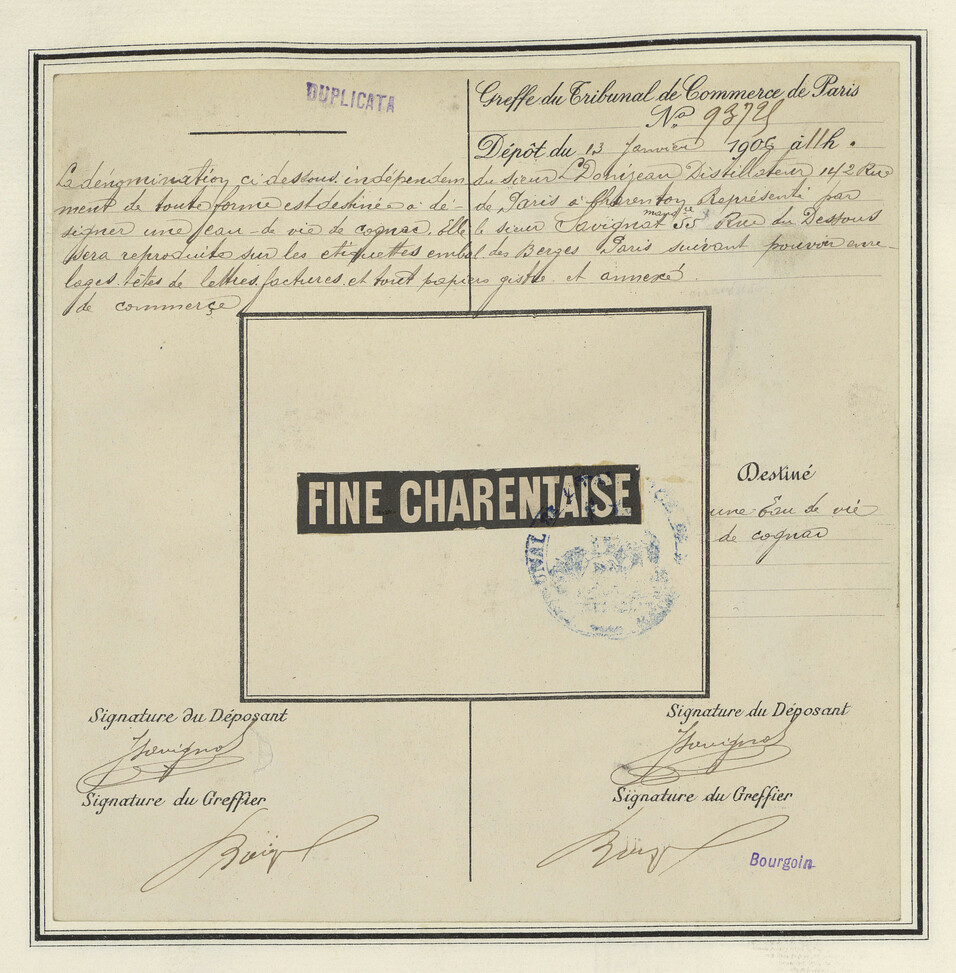 DUPLICATA
La dénomination ci dessous indépendem
ment de toute forme est destinée à dé-
signer une eau-de vie de cognac. Elle
sera reproduite sur les étiquettes embal
lages. têtes de lettres, factures et tout papiers
de commerce
Greffe du Tribunal de Commerce de Paris
No 93725
Dépôt du 13 Janvier 1906 à 11h.
du sieur L Donizeau Distillateur 14/2 Rue
de Paris à Charenton Représenté par
le sieur Savignat 55 Rue du Dessous
des Berges Paris suivant pouvoir enre-
gistré et annexé.
FINE CHARENTAISE
Destiné
une Eau de vie
de cognac
Signature du Déposant
Signature du Greffier
Signature du Déposant
Signature du Greffier
Bourgoin